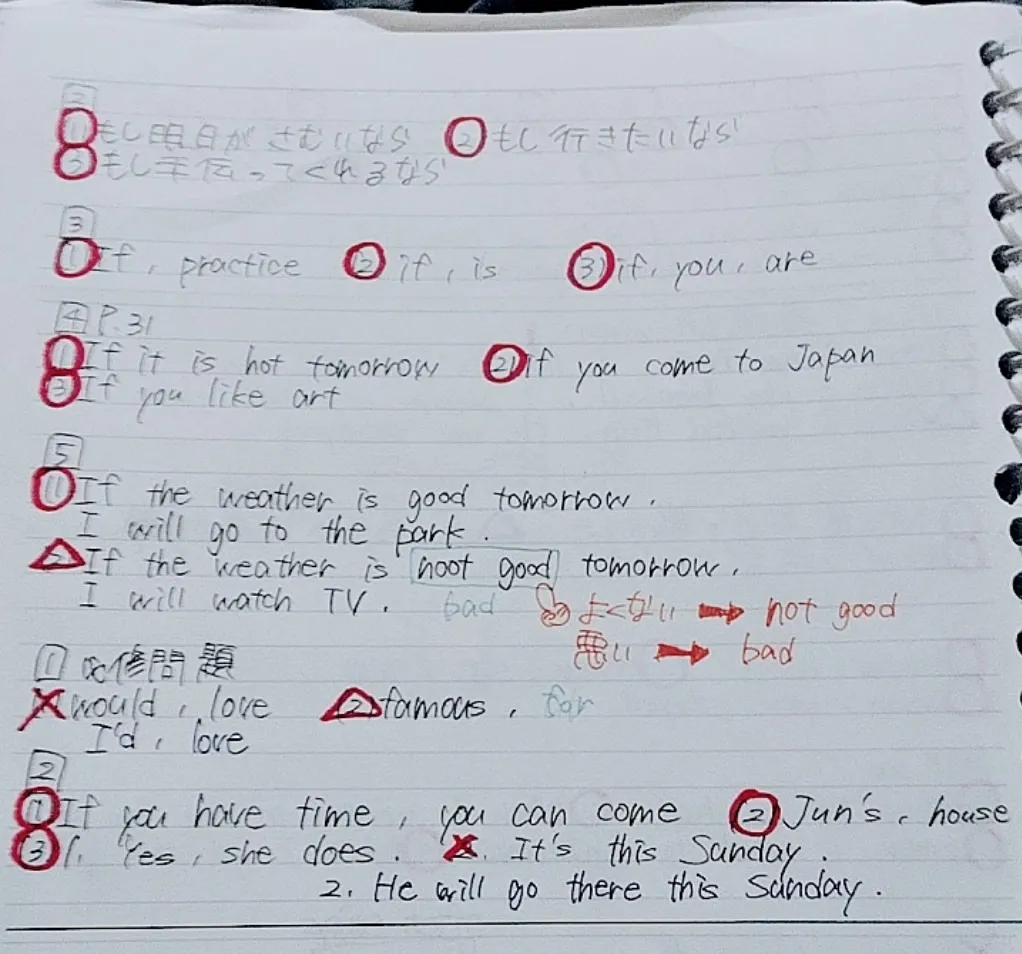 2
① もし明日がさむいなら ② もし行きたいなら
③ もし手伝ってくれるなら
3
① If, practice ② if, is ③ if, you, are
4 P.31
① If it is hot tomorrow ② if you come to Japan
③ If you like art
5
① If the weather is good tomorrow.
I will go to the park.
2 If the weather is noot good tomorrow.
I will watch TV. bad よくない → not good
悪い → bad
1 必修問題
would, love 2 famous, for
I'd, love
2
① If you have time, you can come ② Jun's, house
③ 1. Yes, she does. 2. It's this Sunday.
2. He will go there this Sunday.